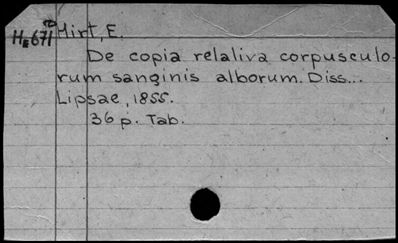 He671 Hirt, E.
De copia relaliva corpusculo-
rum sanginis alborum. Diss...
Lipsae, 1855.
36 p. Tab.